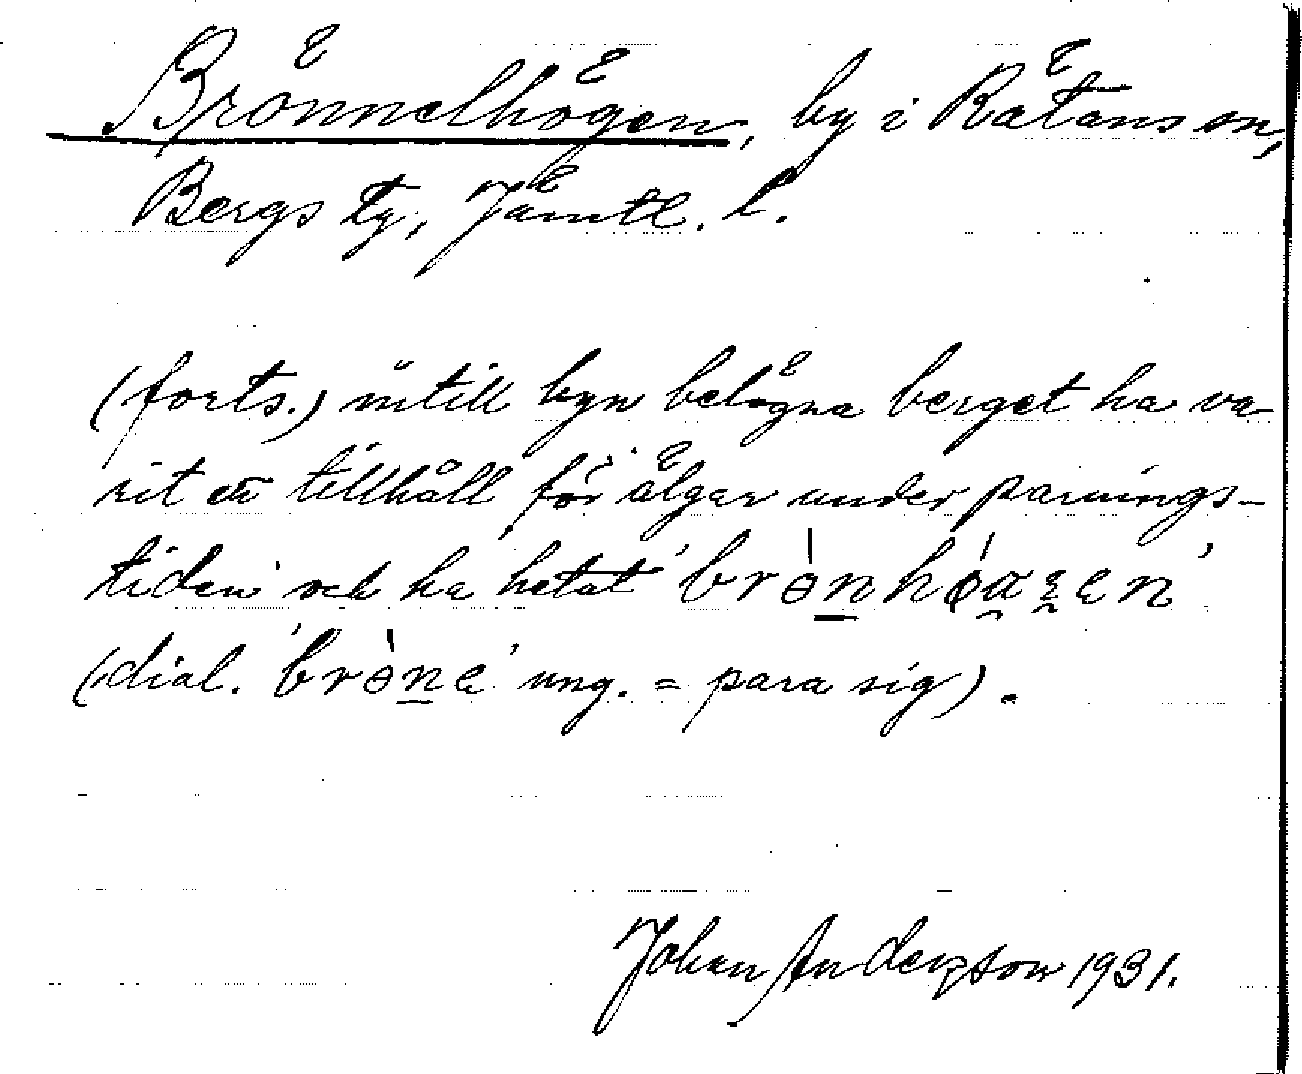 Brönnelhögen, by i Rätans sn,
Bergs tg, Jämtl. l.
(forts.) intill byn belägna berget ha va-
rit ett tillhåll för älgar under parnings-
tiden och ha hetat
(dial. ung. = para sig).
Johan Anderzson 1931.